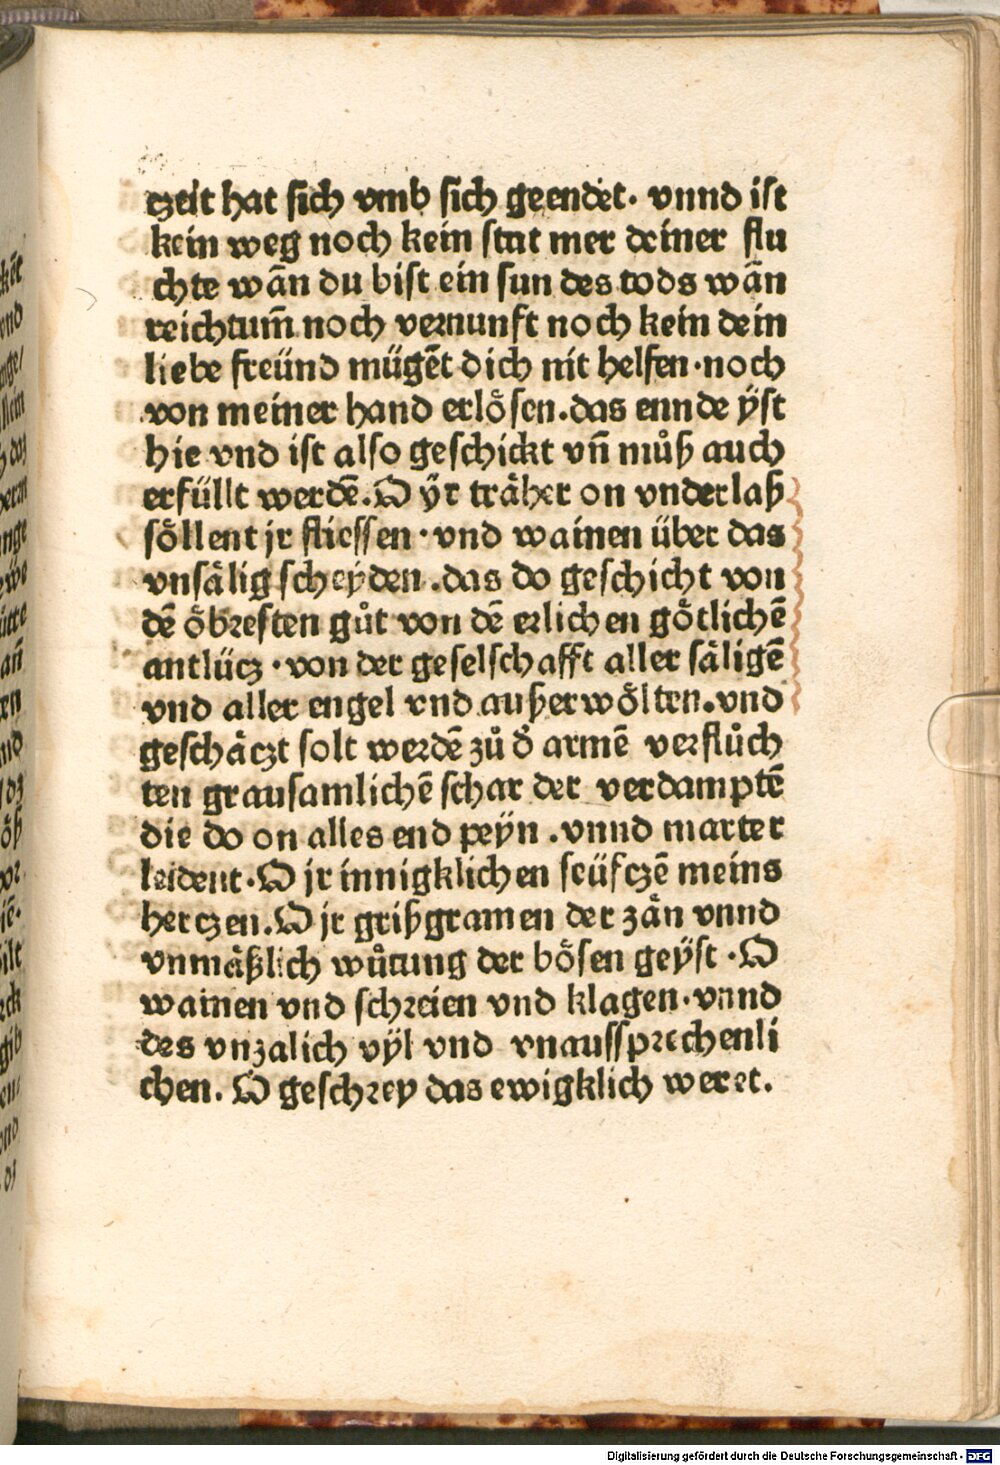 czeit hat sich vmb sich geendet. vnnd ist
kein weg noch kein stat mer deiner flu
chte wān du bist ein sun des tods wān
reichtum̄ noch vernunft noch kein dein
liebe freünd mügēt dich nit helfen·noch
von meiner hand erlösen.das ennde ÿst
hie vnd ist also geschickt vn̄ můß auch
erfüllt werdē.O ÿr träher on vnderlaß
söllent jr fliessen·vnd wainen über das
vnsälig scheyden.das do geschicht von
dē öbresten gůt von dē erlichen götlichē
antlücz·von der geselschafft aller säligē
vnd aller engel vnd außerwölten.vnd
geschäczt solt werdē zů d̓ armē verflůch
ten grausamlichē schar der verdamptē
die do on alles end peÿn.vnnd marter
leident.O jr innigklichen seüfczē meins
herczen.O jr grißgramen der zän vnnd
vnmäßlich wůtung der bösen geÿst·O
wainen vnd schreien vnd klagen·vnnd
des vnzalich vÿl vnd vnaussprechenli
chen. O geschrey das ewigklich weret.
Digitalisierung gefördert durch die Deutsche Forschungsgemeinschaft - DFG